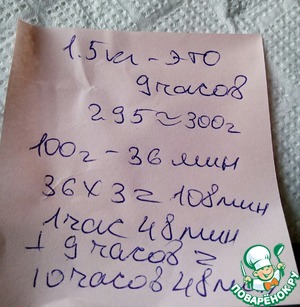 1.5кг - это
9 часов
295 ≈ 300г
100г - 36 мин
36 х 3 = 108 мин
1 час 48 мин
+ 9 часов =
10 часов 48 м
ПОВАРЕНОК.РУ